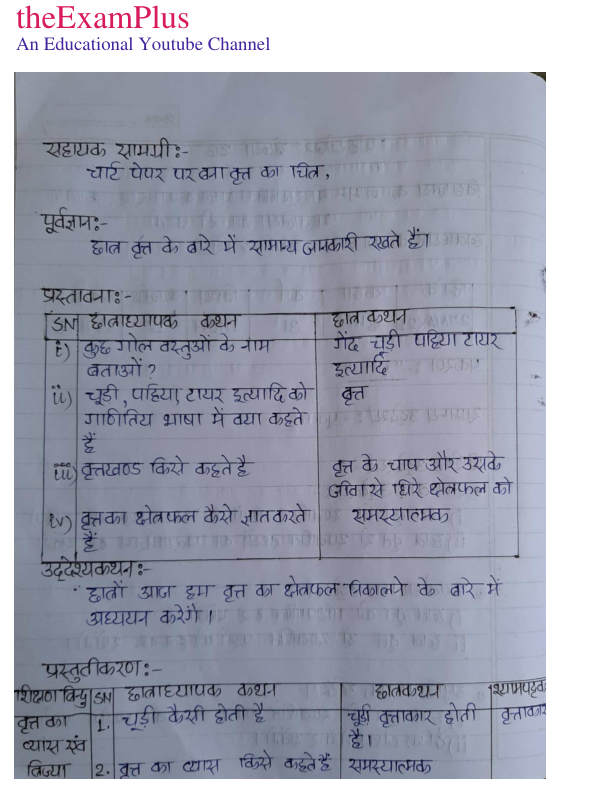 theExamPlus
An Educational Youtube Channel
सहायक सामग्री:-
चार्ट पेपर पर बना वृत्त का चित्र,
पूर्वज्ञान:-
छात्र वृत्त के बारे में सामान्य जानकारी रखते हैं।
प्रस्तावना:-
SN छात्राध्यापक कथन छात्र कथन
i) कुछ गोल वस्तुओं के नाम गेंद चूड़ी पहिया टायर
बताओं? इत्यादि
ii) चूड़ी, पहिया, टायर इत्यादि को वृत्त
गाणितिय भाषा में क्या कहते
हैं
iii) वृत्तखण्ड किसे कहते है वृत्त के चाप और उसके
जीवा से घिरे क्षेत्रफल को
iv) वृत्त का क्षेत्रफल कैसे ज्ञात करते समस्यात्मक
हैं
उद्देश्यकथन:-
छात्रों आज हम वृत्त का क्षेत्रफल निकालने के बारे में
अध्ययन करेंगे।
प्रस्तुतीकरण:-
शिक्षण बिन्दु SN छात्राध्यापक कथन छात्रकथन श्यामपट्टक
वृत्त का 1. चूड़ी कैसी होती है चूड़ी वृत्ताकार होती वृत्ताकार
व्यास एवं है।
त्रिज्या 2. वृत्त का व्यास किसे कहते हैं समस्यात्मक